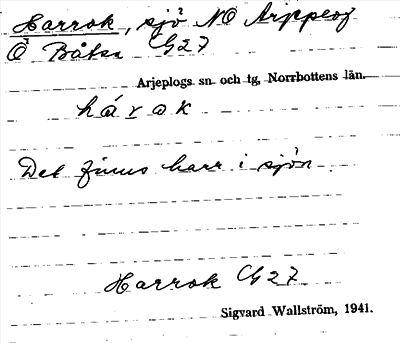 Harrok, sjö NO Arjeplog
Ö Båtsa G27
Arjeplogs sn och tg, Norrbottens län.
hárok
Det finns harr i sjön.
Harrok G27
Sigvard Wallström, 1941.